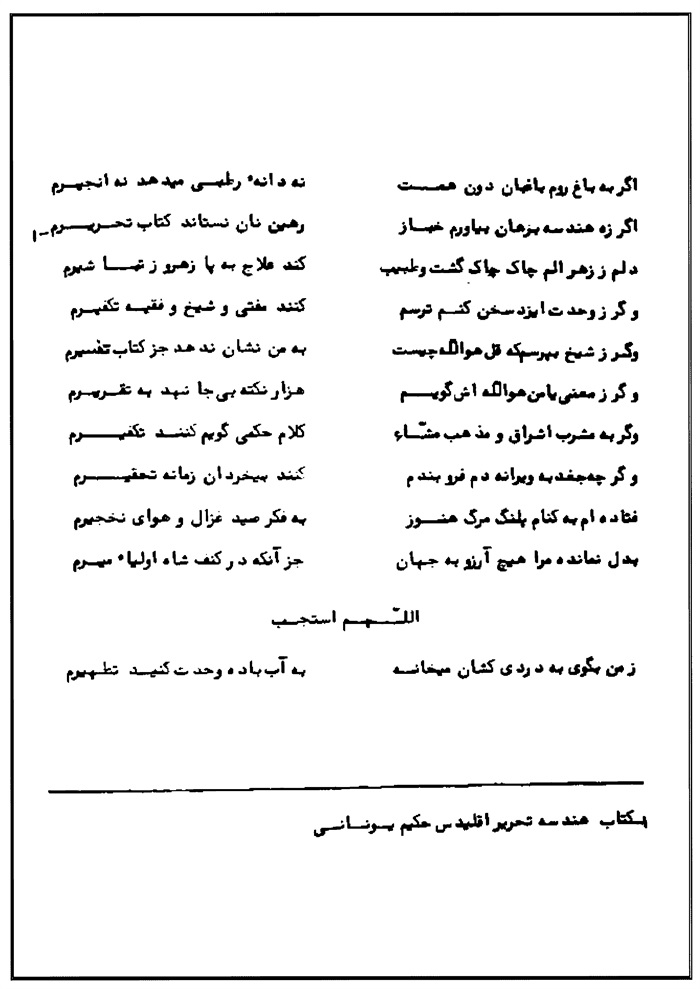 اگر به باغ روم باغبان دون همت نه دانهٔ رطبی میدهد نه انجیرم
اگر زه هندسه برهان بیاورم خباز رهین نان نستاند کتاب تحریرم ۱-
دلم ز زهر الم چاک چاک گشت و طبیب کند علاج به پا زهر و ز تبا شیرم
و گر ز وحدت ایزد سخن کنم ترسم کنند مفتی و شیخ و فقیه تکفیرم
وگر ز شیخ بپرسم که قل هوالله چیست به من نشان ندهد جز کتاب تفسیرم
و گر ز معنی یا من هوالله اش گویم هزار نکته بی جا نهد به تقریرم
وگر به مشرب اشراق و مذهب مشّاء کلام حکمی گویم کنند تکفیرم
و گر چه جغد به ویرانه دم فرو بندم کنند بیخردان زمانه تحقیرم
فتاده ام به کنام پلنگ مرگ هنوز به فکر صید غزال و هوای نخجیرم
بدل نمانده مرا هیچ آرزو به جهان جز آنکه در کنف شاه اولیاء میرم
اللّهم استجب
ز من بگوی به دردی کشان میخانه به آب باده وحدت کنید تطهیرم
۱-کتاب هندسه تحریر اقلیدس حکیم یونانی